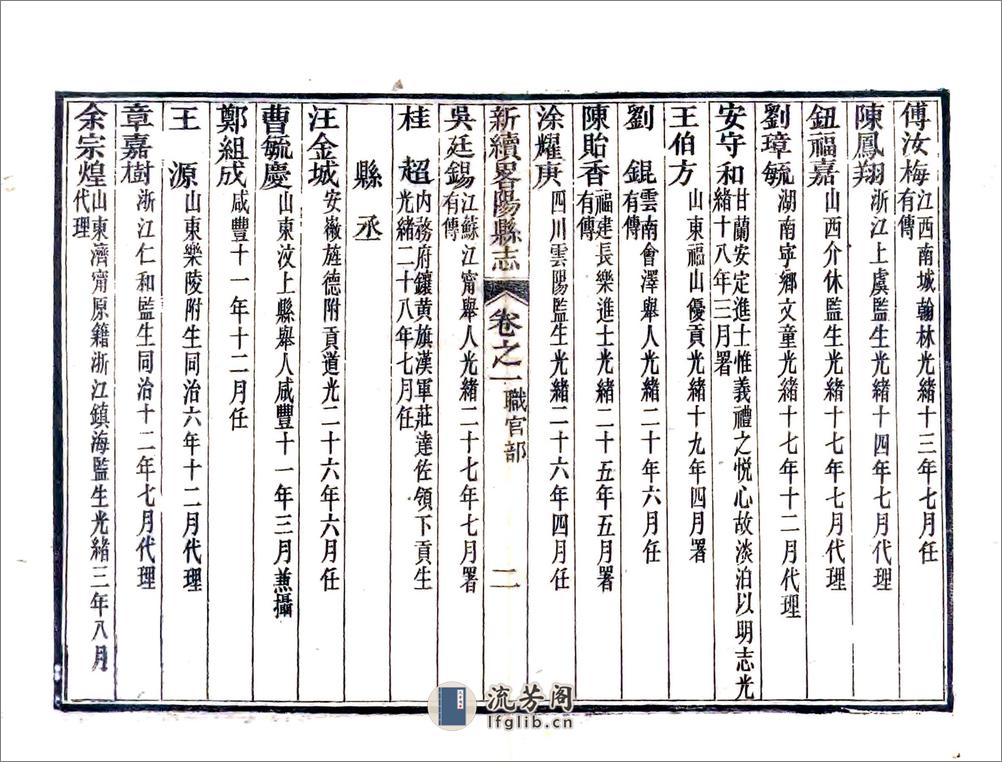 傅汝梅江西南城翰林光緒十三年七月任有傳
陳鳳翔浙江上虞監生光緒十四年七月代理
鈕福嘉山西介休監生光緒十七年七月代理
劉璋毓湖南寧鄉文童光緒十七年十二月代理
安守和甘蘭安定進士惟義禮之悅心故淡泊以明志光緒十八年三月署
王伯方山東福山優貢光緒十九年四月署
劉錕雲南會澤舉人光緒二十年六月任有傳
陳貽香福建長樂進士光緒二十五年五月署有傳
涂耀庚四川雲陽監生光緒二十六年四月任
新續畧陽縣志 卷之一 職官部 二
吳廷錫江蘇江甯舉人光緒二十七年七月署有傳
桂超內務府鑲黃旗漢軍莊達佐領下貢生光緒二十八年七月任
縣丞
汪金城安徽旌德附貢道光二十六年六月任
曹毓慶山東汶上縣舉人咸豐十一年三月兼攝
鄭組成咸豐十一年十二月任
王源山東樂陵附生同治六年十二月代理
章嘉樹浙江仁和監生同治十二年七月代理
余宗煌山東濟甯原籍浙江鎮海監生光緒三年八月代理
流芳阁
lfglib.cn